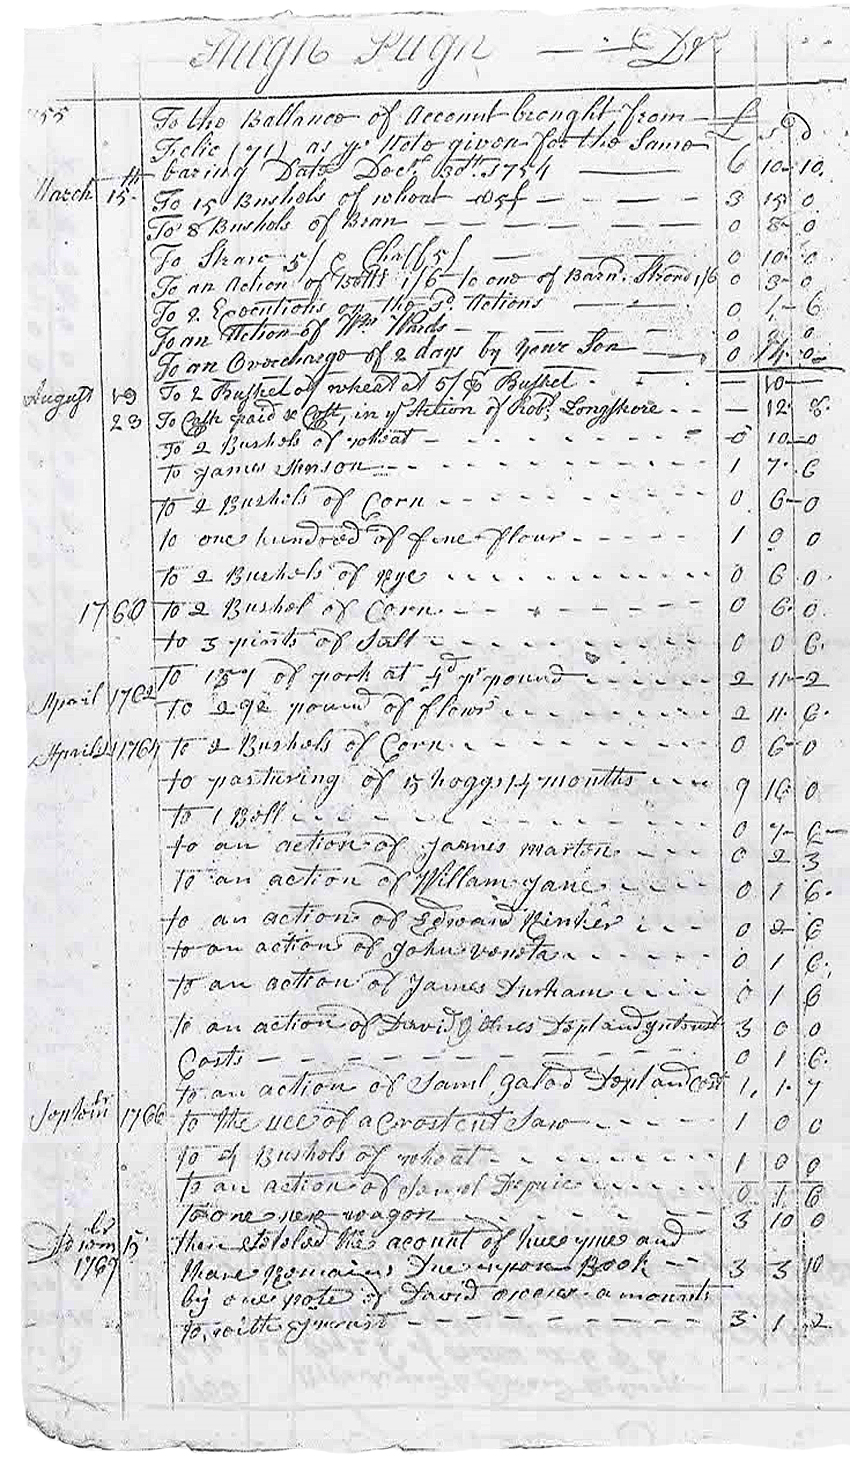 Hugh Pugh — — Dr
55 To the Ballance of Account brought from — £ s D
Folio (71) as pr Note given for the Same
baring Date Decr 30th 1754 — 6 10 10
March 15th To 15 Bushels of wheat 5/ — 3 15 0
To 8 Bushels of Bran — 0 8 0
To Straw 5/ & Chaff 5/ — 0 10 0
To an Action of 1/6 to one of Barn. Strond 1/6 0 3 0
To 2 Executions on the sd. Actions — 0 1 6
To an Action of Wm — 0 0
To an Overcharge of 2 days by your Son — 0 14 0
August 19 To 2 Bushel of wheat at 5/ Bushel — 10 —
23 To Cash paid & Cost, in ye Action of Robt. Longshore — 12 8
To 2 Bushels of wheat — 0 10 0
to James — 1 7 6
to 2 Bushels of Corn 0 6 0
to one hundred of fine flour 1 0 0
to 2 Bushels of Rye 0 6 0
1760 to 2 Bushel of Corn 0 6 0
to 3 pints of Salt 0 0 6
to of pork at 4d pr pound 2 11 2
April 1762 to 292 pound of flour 2 11 6
April 1764 to 2 Bushels of Corn 0 6 0
to pasturing of 15 hoggs 14 months 9 16 0
to 1 Bell 0 7 6
to an action of James marten 0 2 3
to an action of Willam Jane 0 1 6
to an action of Edward Rinker 0 2 6
to an action of John 0 1 6
to an action of James Durham 0 1 6
to an action of David and intrust 3 0 0
Costs — 0 1 6
to an action of Saml and Cost 1 1 7
Septembr 1766 to the uce of a Croscut Saw 1 0 0
to 4 Bushels of wheat 1 0 0
to an action of 0 1 6
to one new wagon 3 10 0
15 then the acount of and
1767 thare Remains Due upon Book — 3 3 10
by one note of David amounts
to, with intrust 3 1 2